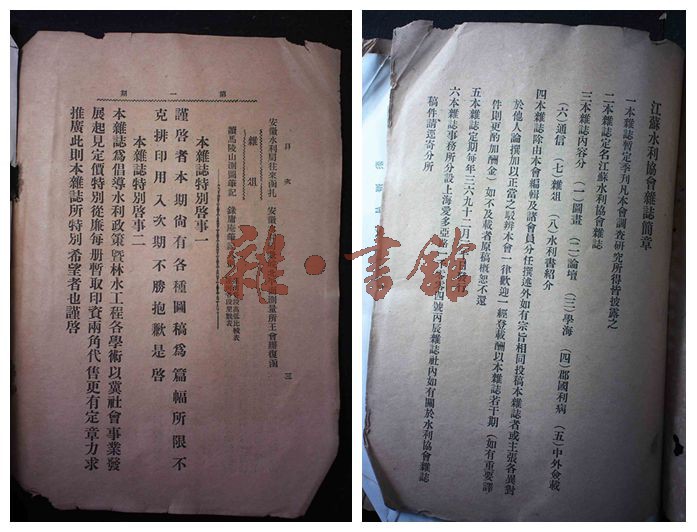 江蘇水利協會雜誌簡章
一本雜誌暫定季刊凡本會調查研究所得皆披露之
二本雜誌定名江蘇水利協會雜誌
三本雜誌內容分 (一)圖畫 (二)論壇 (三)學海 (四)郡國利病 (五)中外僉載
(六)通信 (七)雜俎 (八)水利書紹介
四本雜誌除由本會編輯及諸會員分任撰述外如有宗旨相同投稿本雜誌者或主張各異對
於他人論撰加以正當之駁辨本會一律歡迎一經登載酬以本雜誌若干期(如有重要譯
件則更酌加酬金)如不及載者原稿概恕不還
五本雜誌定期每年三六九十二月
六本雜誌事務所分設上海愛多亞路 號丙辰雜誌社內如有關於水利協會雜誌
稿件請逕寄分所
第一期
目次 三
安徽水利局往來函扎 安徽水 測量所王會辦復函
雜俎
讀馬陵山測圖筆記
本雜誌特別啓事一
謹啓者本期尚有各種圖稿爲篇幅所限不
克排印用入次期不勝抱歉是啓
本雜誌特別啓事二
本雜誌爲倡導水利政策曁林水工程各學術以冀社會事業發
展起見定價特別從廉每册暫取印資兩角代售更有定章力求
推廣此則本雜誌所特別希望者也謹啓
雜·書館